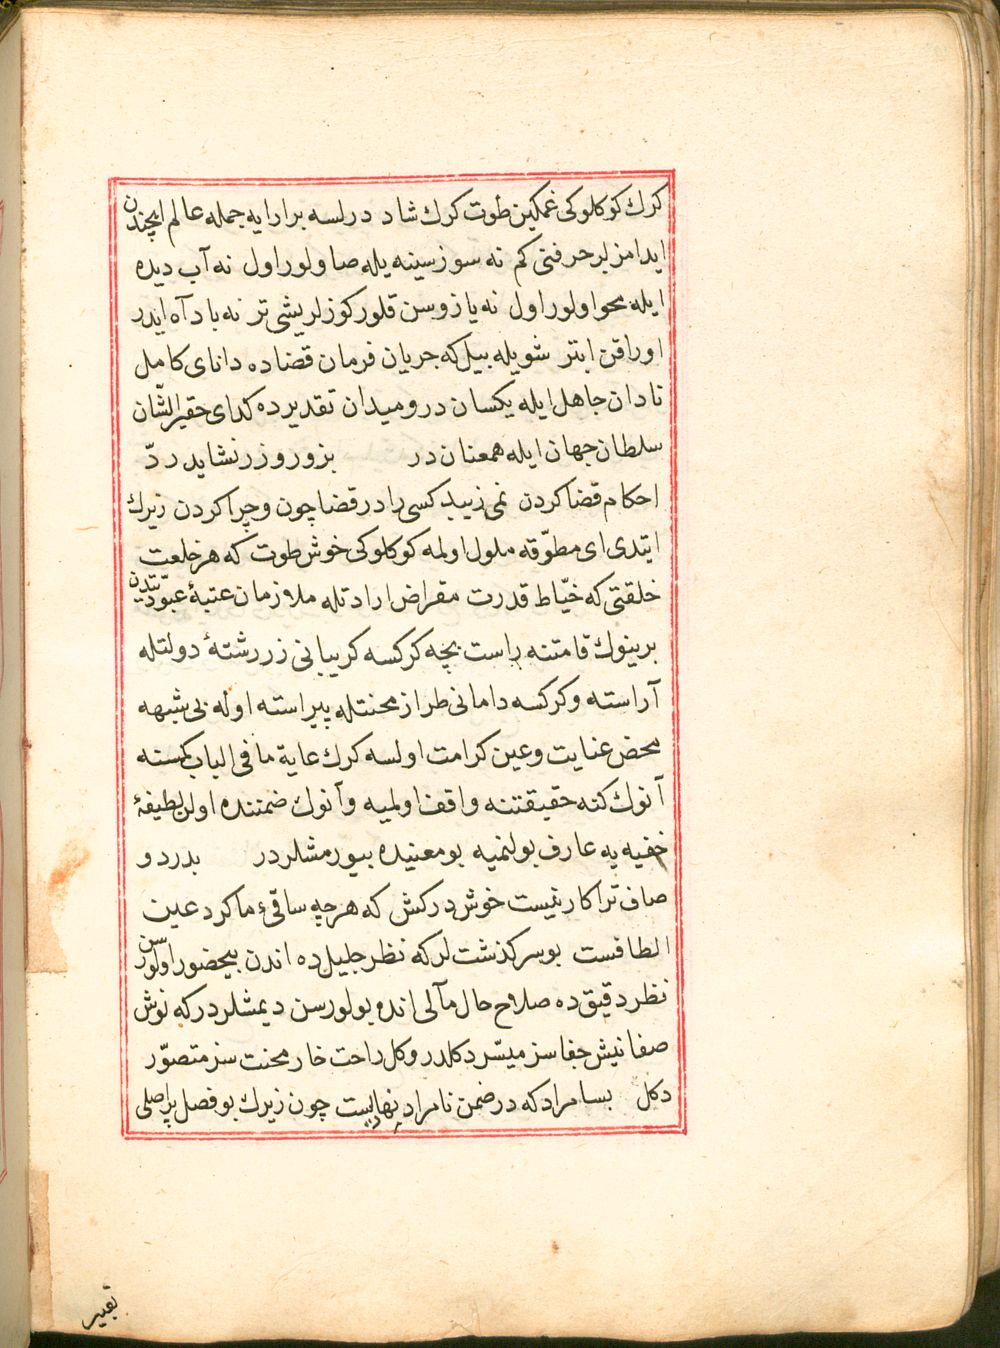 كرك كوكلوكی غمكین طوت كرك شاد درلسه برارایه جمله عالم ایچندن
ایدامزلر حرفتی كم نه سوز سینه یله صاولور اول نه آب دیده
ایله محو اولور اول نه یازوسن قلور كوزلر یشی تر نه باد آه ایدر
اوراقن ابتر شویله بیل كه جریان فرمان قضاده دانای كامل
نادان جاهل ایله یكسان در و میدان تقدیرده كدای حقیر الشّان
سلطان جهان ایله همعنان در بزور و زر نشاید ردّ
احكام قضا كردن نمی زیبد كسی را در قضا چون و چرا كردن زیرك
ایتدی ای مطوّقه ملول اولمه كوكلوكی خوش طوت كه هر خلعت
خلقتی كه خیّاط قدرت مقراض ارادتله ملازمان عتبهٔ عبودیتدن
برینوك قامتنه راست بچه كركسه كریبانی زر رشتهٔ دولتله
آراسته و كركسه دامانی طراز محنتله پیراسته اوله بی شبهه
محض عنایت و عین كرامت اولسه كرك غایة ما فی الباب كمسنه
آنوك كنه حقیقتنه واقف اولمیه و آنوك ضمننده اولن لطیفهٔ
خفیه یه عارف بولنمیه بو معنیده بیورمشلردر بدرد و
صاف ترا كار نیست خوش دركش كه هرچه ساقیٔ ما كرد عین
الطافست بو سركذشت لر كه نظر جلیل ده اندن بیحضور اولورسن
نظر دقیق ده صلاح حال مآلی انده بولورسن دیمشلردر كه نوش
صفا نیش جفاسز میسّر دكلدر و كل راحت خار محنت سز متصوّر
دكل بسا مراد كه در ضمن نامرادیهاست چون زیرك بو فصل پر اصلی
تقبیر